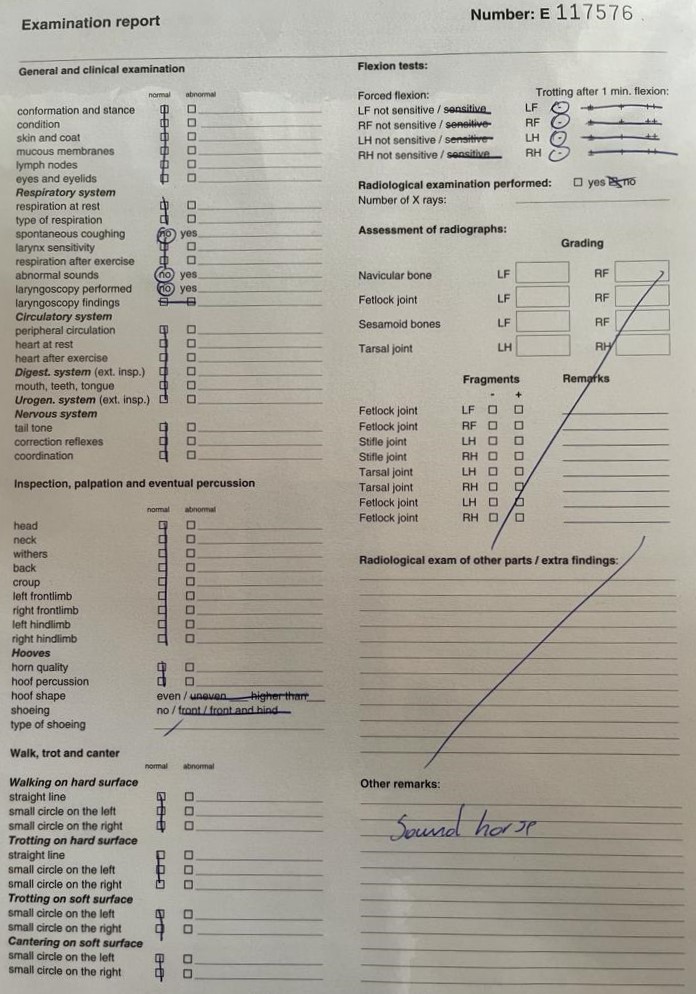 Examination report
Number: E 117576
General and clinical examination
normal abnormal
conformation and stance
condition
skin and coat
mucous membranes
lymph nodes
eyes and eyelids
Respiratory system
respiration at rest
type of respiration
spontaneous coughing no yes
larynx sensitivity
respiration after exercise
abnormal sounds no yes
laryngoscopy performed no yes
laryngoscopy findings
Circulatory system
peripheral circulation
heart at rest
heart after exercise
Digest. system (ext. insp.)
mouth, teeth, tongue
Urogen. system (ext. insp.)
Nervous system
tail tone
correction reflexes
coordination
Inspection, palpation and eventual percussion
normal abnormal
head
neck
withers
back
croup
left frontlimb
right frontlimb
left hindlimb
right hindlimb
Hooves
horn quality
hoof percussion
hoof shape even / uneven higher than
shoeing no / front / front and hind
type of shoeing
Walk, trot and canter
normal abnormal
Walking on hard surface
straight line
small circle on the left
small circle on the right
Trotting on hard surface
straight line
small circle on the left
small circle on the right
Trotting on soft surface
small circle on the left
small circle on the right
Cantering on soft surface
small circle on the left
small circle on the right
Flexion tests:
Forced flexion: Trotting after 1 min. flexion:
LF not sensitive / sensitive LF - ± + ++
RF not sensitive / sensitive RF - ± + ++
LH not sensitive / sensitive LH - ± + ++
RH not sensitive / sensitive RH - ± + ++
Radiological examination performed: yes no
Number of X rays:
Assessment of radiographs:
Grading
Navicular bone LF RF
Fetlock joint LF RF
Sesamoid bones LF RF
Tarsal joint LH RH
Fragments Remarks
- +
Fetlock joint LF
Fetlock joint RF
Stifle joint LH
Stifle joint RH
Tarsal joint LH
Tarsal joint RH
Fetlock joint LH
Fetlock joint RH
Radiological exam of other parts / extra findings:
Other remarks:
Sound horse